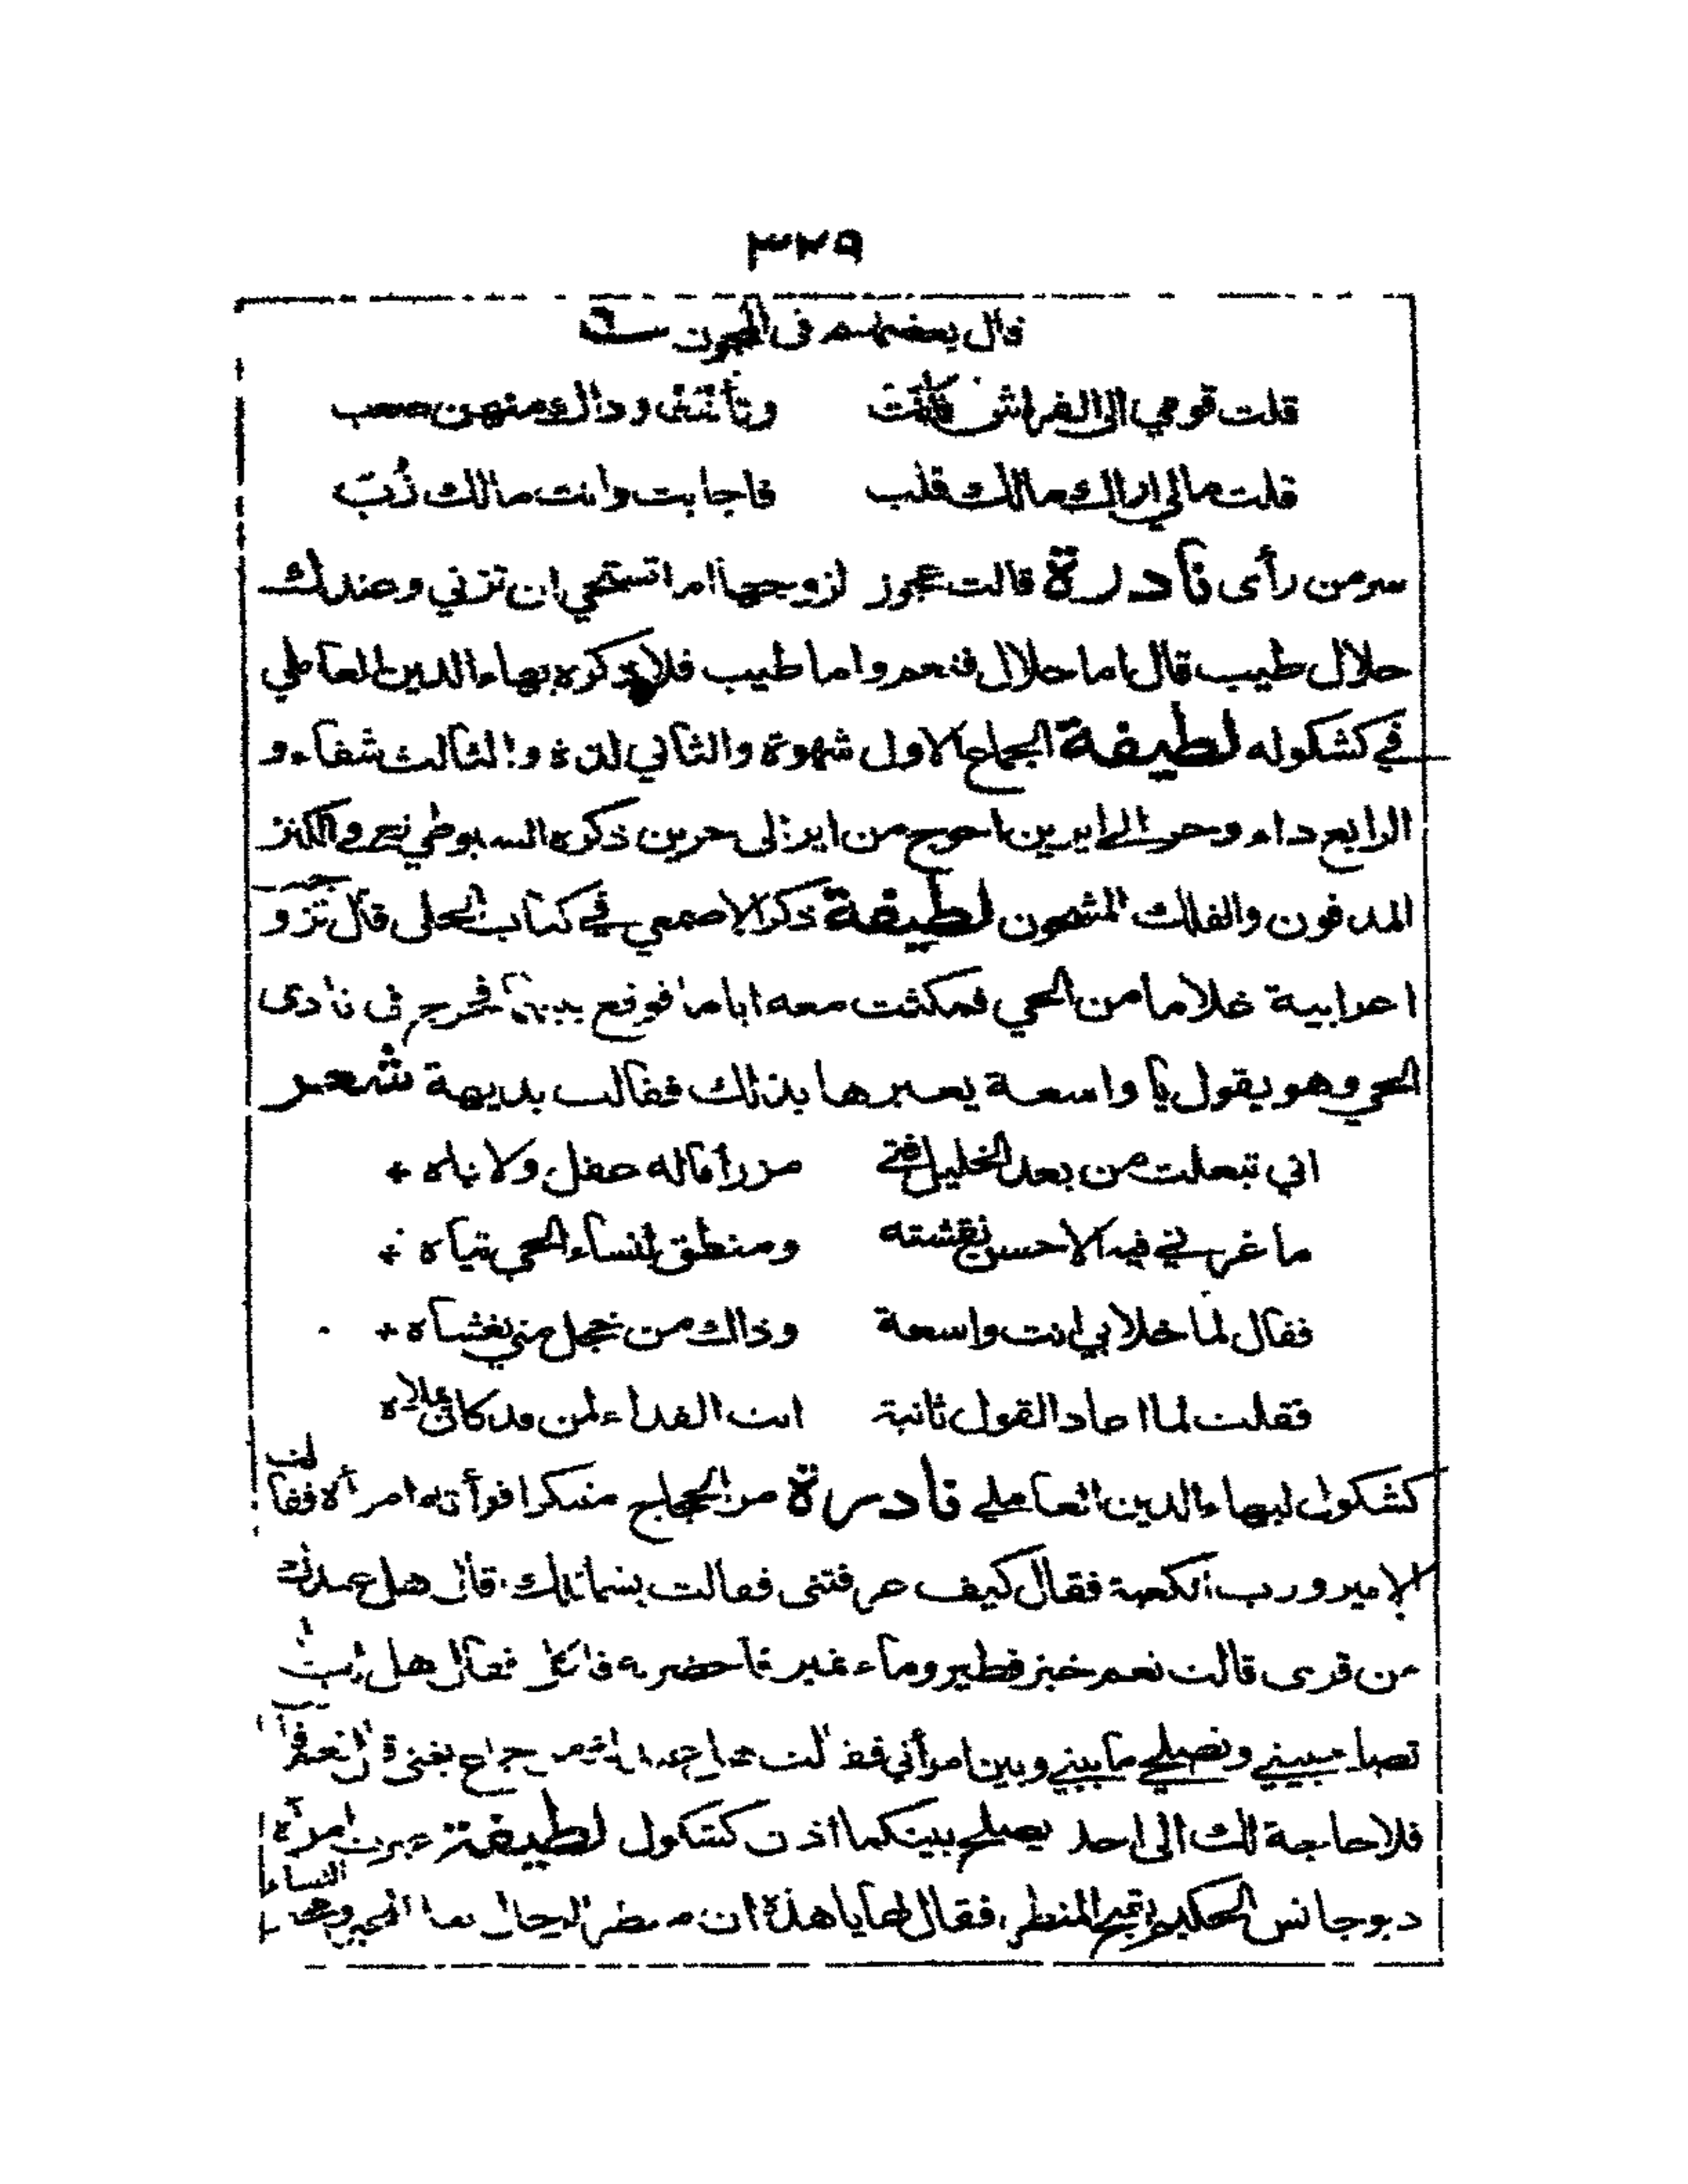 ٣٢٩
قال بعضهم في المجون
قلت قومي الى الفراش وتأنثت ودالك منهن صعب
قلت مالي اراك مالك قلب فاجابت وانت مالك زُبّ
سر من رأى نادرة قالت عجوز لزوجها اما تستحي ان تزني وعندك
حلال طيب قال اما حلال فنعم واما طيب فلا ذكره بهاء الدين العاملي
في كشكوله لطيفة الجماع الاول شهوة والثاني لذة والثالث شفاء و
الرابع داء وحر الى ايرين احوج من اير الى حرين ذكره السيوطي في الكنز
المدفون والفلك المشحون لطيفة ذكر الاصمعي في كتاب الحلى قال تزوجت
اعرابية غلاما من الحي فمكثت معه اياما فوقع بينهما فخرج في نادى
الحي وهو يقول يا واسعة يعيرها بذلك فقالت بديهة شعر
اني تبعلت من بعد الخليل فتى مرزأ ماله عقل ولا باه
ما غرني فيه الا حسن نقشته ومنطق لنساء الحي تياه
فقال لما خلا بي انت واسعة وذاك من خجل مني يغشاه
فقلت لما اعاد القول ثانية انت الفداء لمن قد كان يملاه
كشكول لبهاء الدين العاملي نادرة مر الحجاج متنكرا فرأته امرأة فقالت
الامير ورب الكعبة فقال كيف عرفتني فقالت بشمائلك قال هل عندك
من قرى قالت نعم خبز فطير وماء نمير فاحضرته فاكل فقال هل
تصاحبيني وتصلحي ما بيني وبين امرأتي فقالت جماع يغني قال نعم
فلا حاجة لك الى احد يصلح بينكما اذن كشكول لطيفة امرأة
ديوجانس الحكيم بقبح المنظر فقال لها يا هذه ان منظر الرجال
النساء